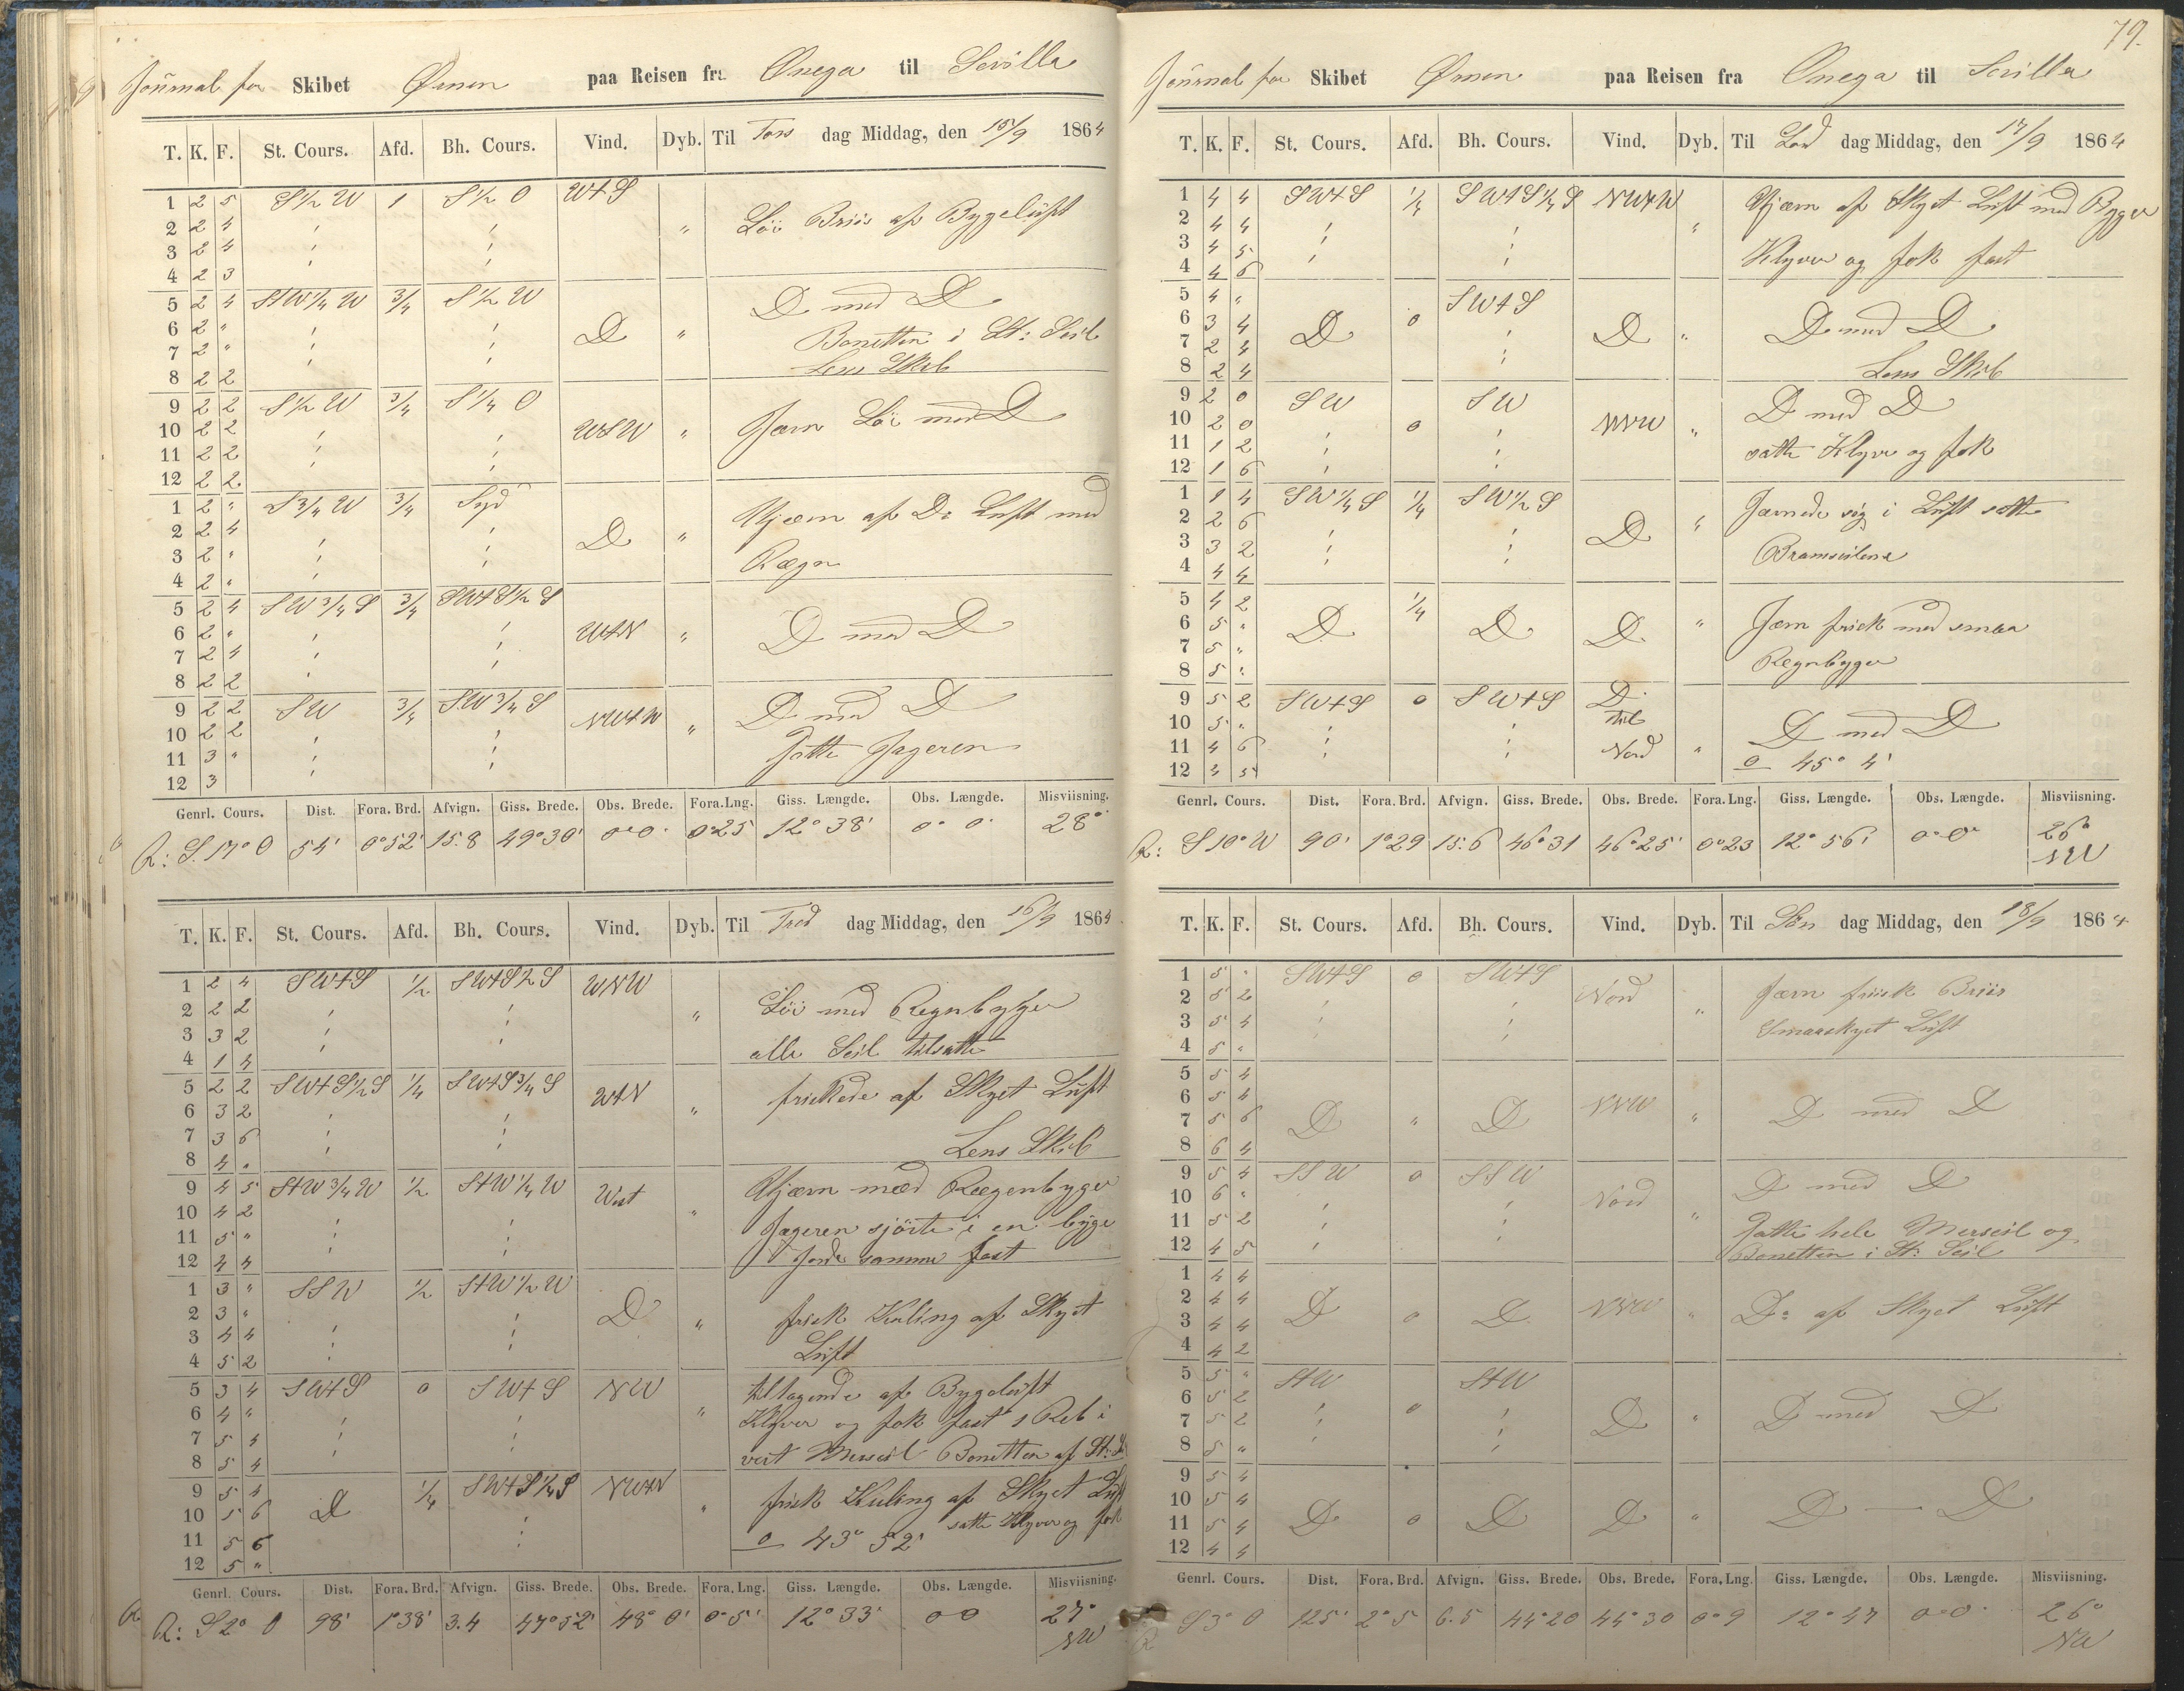 Journal for Skibet Ørnen paa Reisen fra Onega til Sevilla
T. K. F. St. Cours. Afd. Bh. Cours. Vind. Dyb. Til Tors dag Middag, den 15/9 1864
1 2 5 S 1/2 W 1 S 1/2 O W t S
2 2 4 " " " Löi Briis af Bygeluft
3 2 4 " "
4 2 3 " "
5 2 4 S t W 1/4 W 3/4 S 1/2 W D med D
6 2 " " " D " Bonetten i St: Seil
7 2 " " " Lens Skib
8 2 2
9 2 2 S 1/2 W 3/4 S 1/4 O
10 2 2 " " WSW " Jævn Löi med D
11 2 2 " "
12 2 2
1 2 " S 3/4 W 3/4 Syd Ujævn af Do Luft med
2 2 4 " " D "
3 2 " " " Rægn
4 2 " "
5 2 4 SW 3/4 S 3/4 SW t S 1/2 S
6 2 " " " W t N " D med D
7 2 4 " "
8 2 2 "
9 2 2 SW 3/4 SW 3/4 S NW t W D med D
10 2 2 " " "
11 3 " " " Satte Jageren
12 3 "
Genrl. Cours. Dist. Fora. Brd. Afvign. Giss. Brede. Obs. Brede. Fora. Lng. Giss. Længde. Obs. Længde. Misviisning.
R: S. 17° O 54' 0°52' 15.8 49°30' 0°0' 0°25 12°38' 0° 0' 28°
T. K. F. St. Cours. Afd. Bh. Cours. Vind. Dyb. Til Fred dag Middag, den 16/9 1864
1 2 4 SW t S 1/2 SW t S 1/2 S WNW
2 2 2 " " " Löi med Regnbyger
3 3 2 " "
4 1 4 " alle Seil tilsatte
5 2 2 SW t S 1/2 S 1/4 SW t S 3/4 S W t N friskede af Skyet Luft
6 3 2 " " "
7 3 6 " "
8 4 " " Lens Skib
9 4 5 S t W 3/4 W 1/2 S t W 1/4 W West Ujævn med Rægenbyger
10 4 2 "
11 5 " " " Jageren sjörte i en byge
12 4 4 " " gjorde samme fast
1 3 " SSW 1/2 S t W 1/2 W
2 3 " " D " frisk Kuling af Skyet
3 4 4 " " Luft
4 5 2 " "
5 3 4 SW t S 0 SW t S NW tiltagende af Bygeluft
6 4 " " " " Klyver og fok fast 1 Reb i
7 5 4 " "
8 5 4 vert Merseil Bonetten af St: S
9 5 4 1/4 SW t S 1/4 S NW t N frisk Kuling af Skyet Luft
10 5 6 D " " satte Klyver og fok
11 5 6 " 0 43° 52'
12 5 "
Genrl. Cours. Dist. Fora. Brd. Afvign. Giss. Brede. Obs. Brede. Fora. Lng. Giss. Længde. Obs. Længde. Misviisning.
R: S 2° O 98' 1°38' 3.4 47°52' 48° 0' 0°5' 12°33' 0 0 27° NW
79.
Journal for Skibet Ørnen paa Reisen fra Onega til Sevilla
T. K. F. St. Cours. Afd. Bh. Cours. Vind. Dyb. Til Lörd dag Middag, den 17/9 1864
1 4 4 SW t S 1/4 SW t S 1/4 S NW t W Ujævn af Skyet Luft med Byger
2 4 4 " " "
3 4 5 " " Klyver og fok fast
4 4 6 " "
5 4 " SW t S
6 3 4 D 0 " D " D med D
7 2 4 "
8 2 4 Lens Skib
9 2 0 SW SW D med D
10 2 0 " 0 " NNW "
11 1 2 " " satte Klyver og fok
12 1 6 " "
1 1 4 SW 1/4 S 1/4 SW 1/2 S Jævnede sig i Luft satte
2 2 6 " " "
3 3 2 " " D Bramseilene
4 4 4 " "
5 4 2 1/4
6 5 " D D D " Jævn frisk med smaa
7 5 "
8 5 " Regnbyger
9 5 2 SW t S 0 SW t S D
10 5 " " " til D med D
11 4 6 " " Nord "
12 4 5 0 45° 4'
Genrl. Cours. Dist. Fora. Brd. Afvign. Giss. Brede. Obs. Brede. Fora. Lng. Giss. Længde. Obs. Længde. Misviisning.
R: S 10° W 90' 1°29 15.6 46°31 46°25' 0°23 12° 56' 0°0' 26° NW
T. K. F. St. Cours. Afd. Bh. Cours. Vind. Dyb. Til Sön dag Middag, den 18/9 1864
1 5 " SW t S 0 SW t S Jævn frisk Briis
2 5 2 " " Nord "
3 5 4 " " Smaaskyet Luft
4 5 "
5 5 4
6 5 4 NNW
7 5 6 D " D " D med D
8 6 4
9 5 4 SSW 0 SSW D med D
10 6 " " " Nord
11 5 2 " " " Satte hele Merseil og
12 4 5 " Bonetten i St: Seil
1 4 4
2 4 4 NNW
3 4 4 D 0 D " Do af Skyet Luft
4 4 2
5 5 " S t W S t W
6 5 2 " 0 "
7 5 2 " " D " D med D
8 5 " "
9 5 4
10 5 4
11 5 4 D 0 D D " D — D
12 4 4
Genrl. Cours. Dist. Fora. Brd. Afvign. Giss. Brede. Obs. Brede. Fora. Lng. Giss. Længde. Obs. Længde. Misviisning.
R S 3° O 125' 2° 5 6.5 44°20 44°30 0° 9 12° 47 0°0' 26° NW